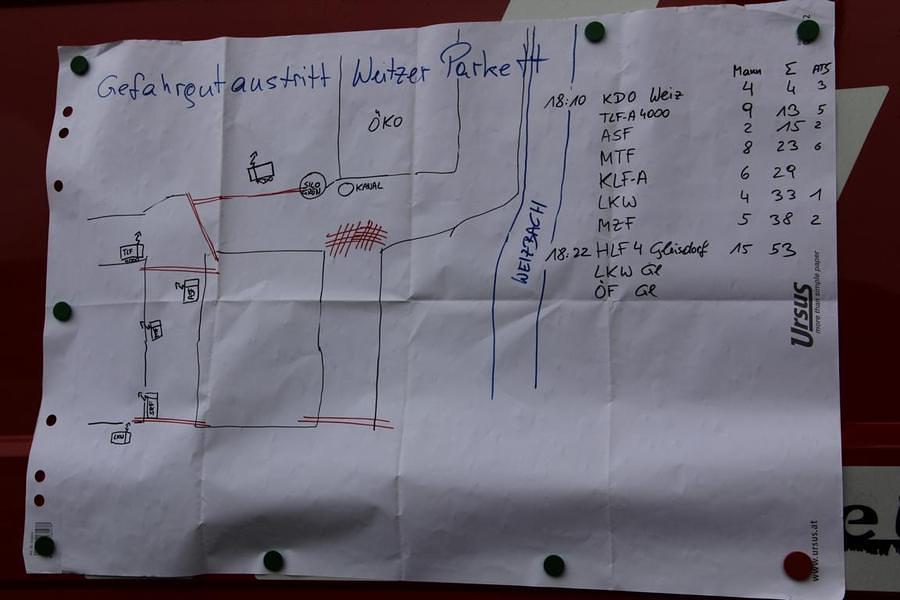 Gefahrgutaustritt Weitzer Parkett
Mann Σ ATS
18:10 KDO Weiz 4 4 3
TLF-A 4000 9 13 5
ASF 2 15 2
MTF 8 23 6
KLF-A 6 29
LKW 4 33 1
MZF 5 38 2
18:22 HLF 4 Gleisdorf 15 53
LKW Gl
ÖF Gl
ÖKO
KANAL
WEIZBACH
TLF
LKW
Ursus
more than simple paper
www.ursus.at